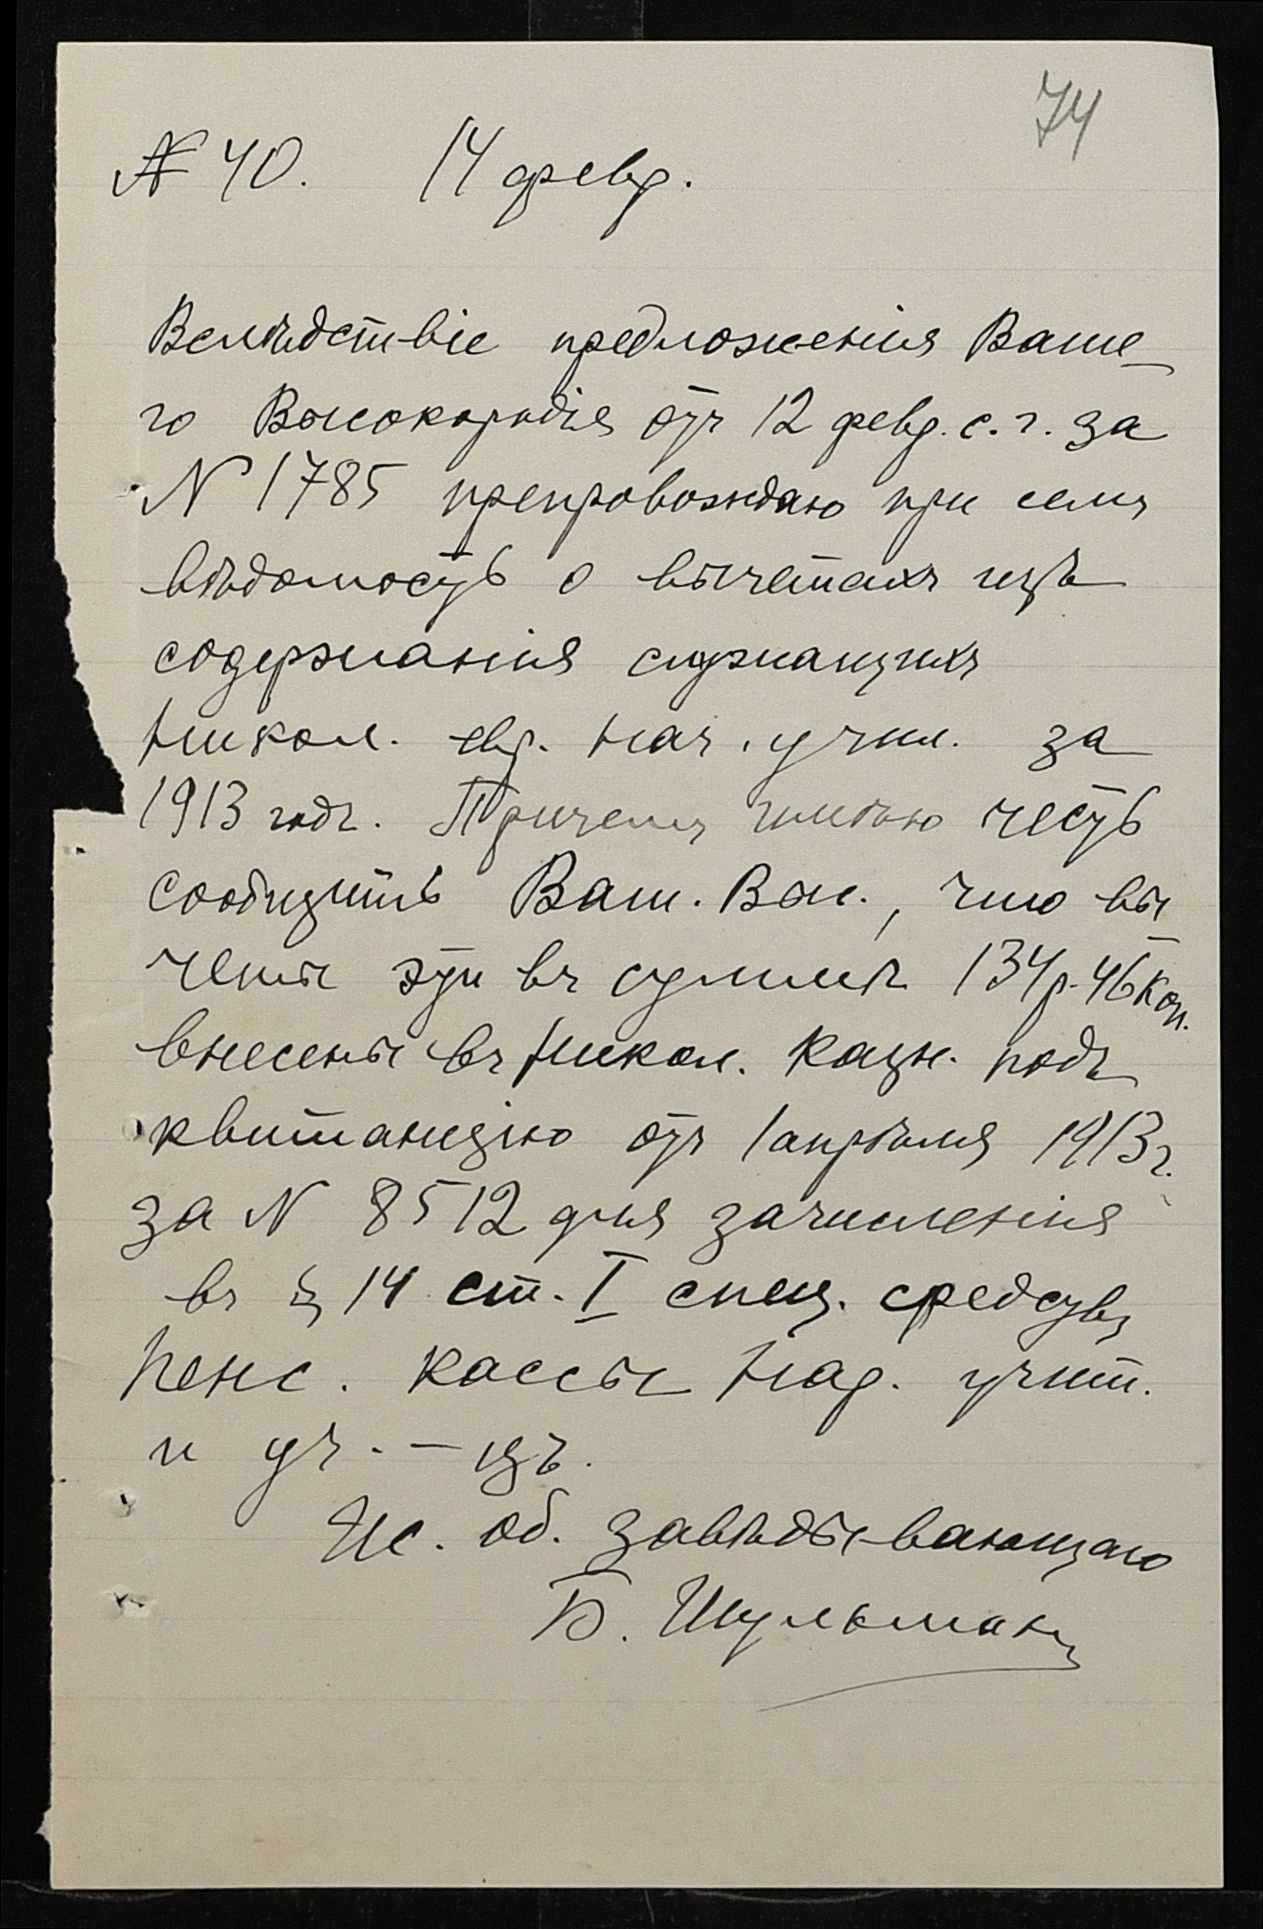 74
№ 40. 14 февр.
Вслѣдствіе предложенія Ваше
го Высокородія отъ 12 февр. с. г. за
N 1785 препровождаю при семъ
вѣдомость о вычетахъ изъ
содержанія служащихъ
Никол. евр. нач. учил. за
1913 годъ. Причемъ имѣю честь
сообщить Ваш. Выс., что вы
четы эти въ суммѣ 134 р. 46 коп.
внесены въ Никол. Казн. подъ
квитанцію отъ 1 апрѣля 1913 г.
за N 8512 для зачисленія
въ § 14 ст. I спец. средствъ
Пенс. кассы нар. учит.
и уч. – цъ.
Ис. об. завѣдывающаго
Б. Шульманъ